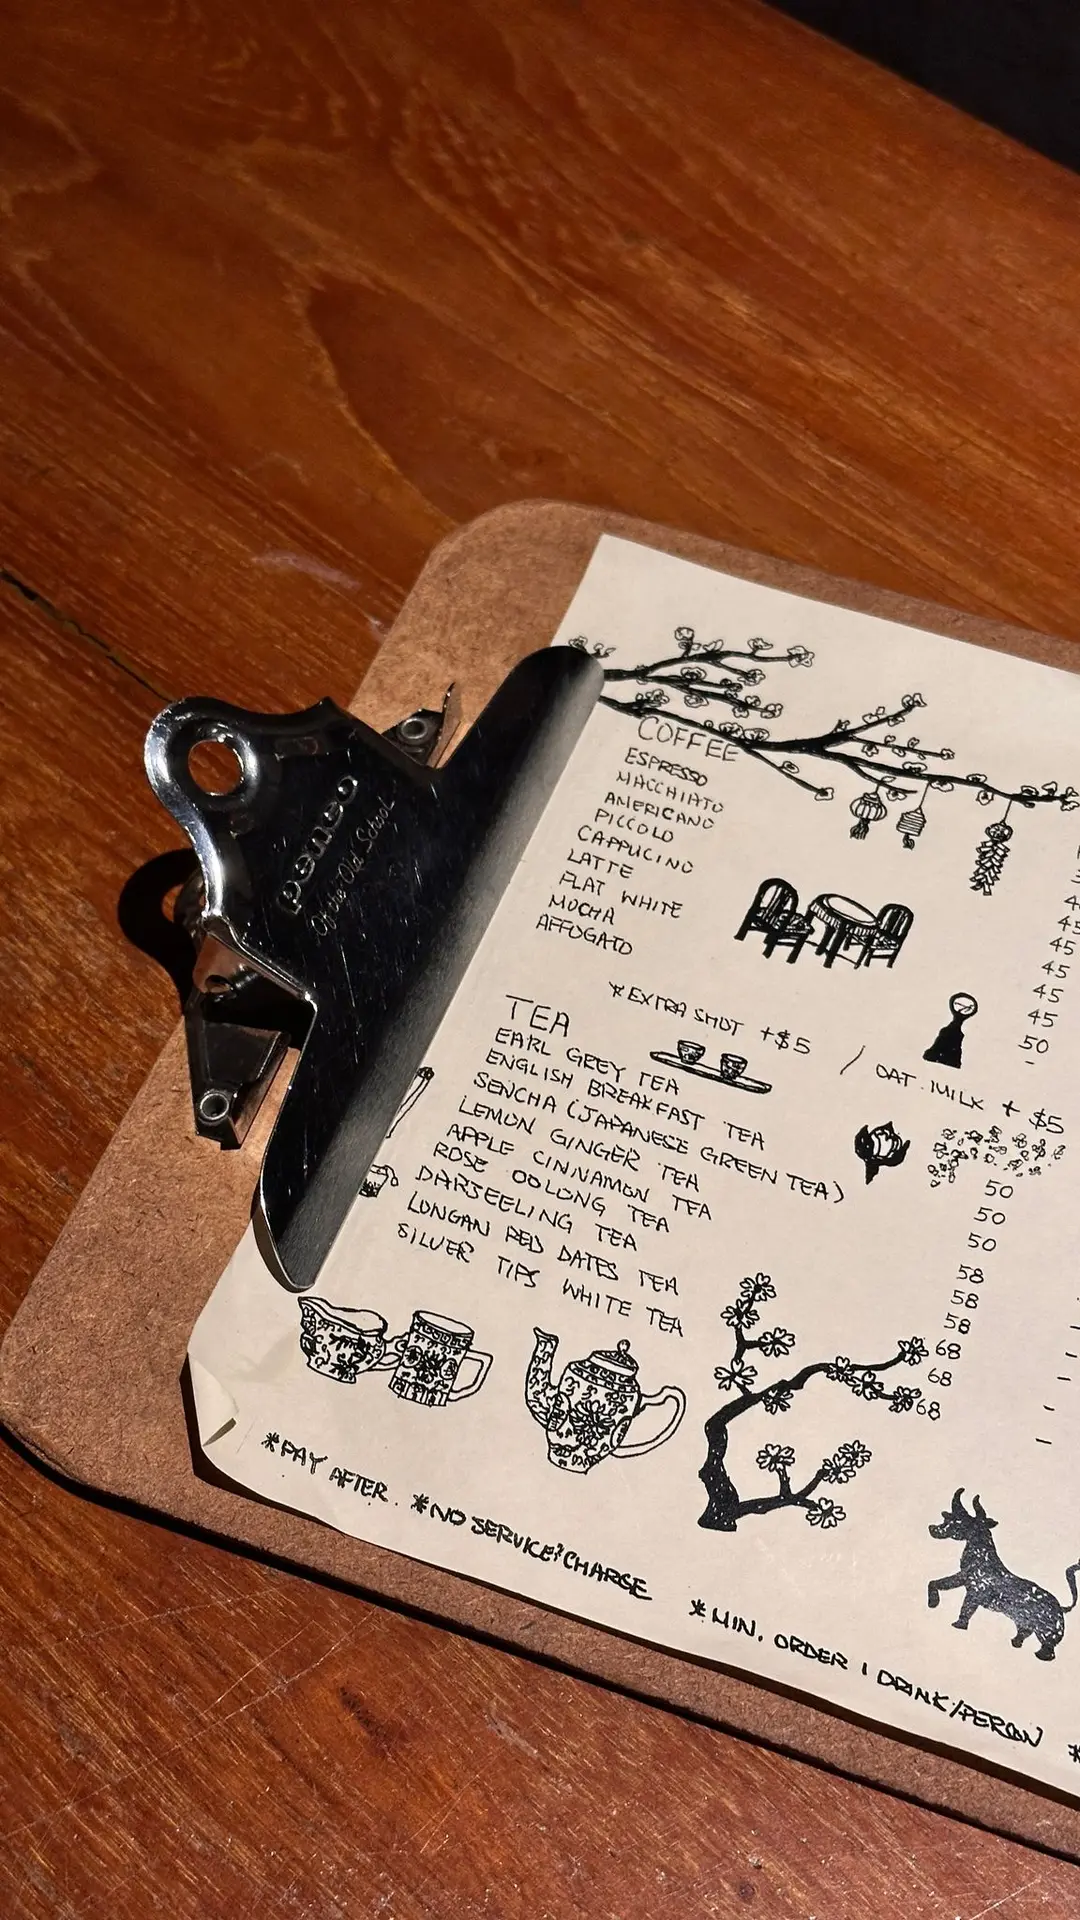 penco
Of the Old School
COFFEE
ESPRESSO
MACCHIATO
AMERICANO
PICCOLO
CAPPUCINO
LATTE
FLAT WHITE
MOCHA
AFFOGATO
45
45
45
45
45
50
-
*EXTRA SHOT +$5 / OAT MILK + $5
TEA
EARL GREY TEA 50
ENGLISH BREAKFAST TEA 50
SENCHA (JAPANESE GREEN TEA) 50
LEMON GINGER TEA 58
APPLE CINNAMON TEA 58
ROSE OOLONG TEA 58
DARJEELING TEA 68
LONGAN RED DATES TEA 68
SILVER TIPS WHITE TEA 68
*PAY AFTER. *NO SERVICE CHARGE *MIN. ORDER 1 DRINK/PERSON *